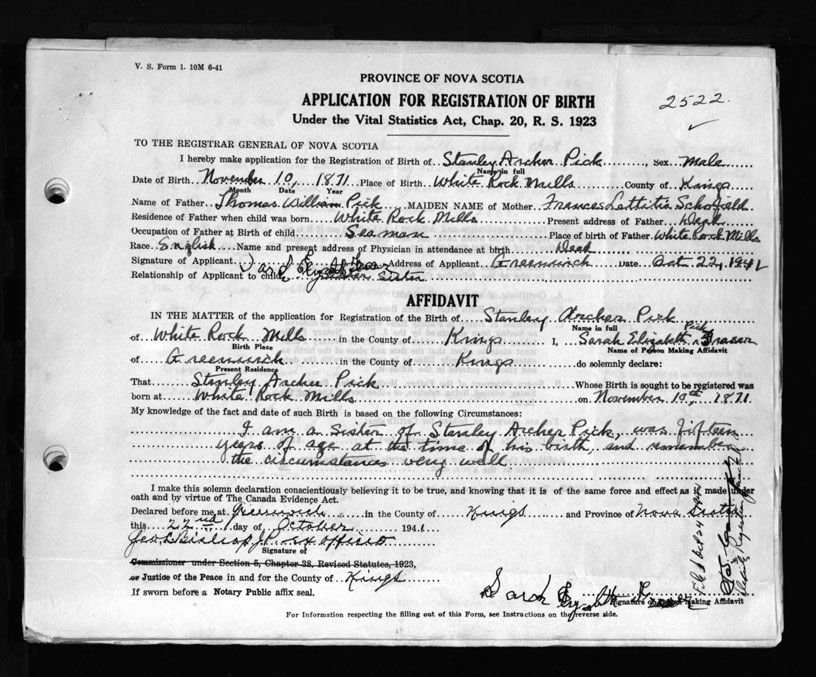 V. S. Form 1. 10M 6-41
PROVINCE OF NOVA SCOTIA
APPLICATION FOR REGISTRATION OF BIRTH
2522.
Under the Vital Statistics Act, Chap. 20, R. S. 1923
TO THE REGISTRAR GENERAL OF NOVA SCOTIA
I hereby make application for the Registration of Birth of Stanley Archer Pick, Sex Male
Name in full
Date of Birth November 10, 1871 Place of Birth White Rock Mills County of Kings
Month Date Year
Name of Father Thomas William Pick MAIDEN NAME of Mother Frances Lattitia Schofield
Residence of Father when child was born White Rock Mills Present address of Father Dead
Occupation of Father at Birth of child Seaman Place of birth of Father White Rock Mills
Race English Name and present address of Physician in attendance at birth Dead
Signature of Applicant Address of Applicant Greenwich Date Oct 22, 1941
Relationship of Applicant to child Sister
AFFIDAVIT
IN THE MATTER of the application for Registration of the Birth of Stanley Archer Pick
Name in full
of White Rock Mills in the County of Kings I, Sarah Elizabeth Pick Fraser
Birth Place Name of Person Making Affidavit
of Greenwich in the County of Kings do solemnly declare:
Present Residence
That Stanley Archer Pick Whose Birth is sought to be registered was
born at White Rock Mills on November 10th 1871.
My knowledge of the fact and date of such Birth is based on the following Circumstances:
I am a Sister of Stanley Archer Pick, was fifteen
years of age at the time of his birth, and remember
the circumstances very well.
I make this solemn declaration conscientiously believing it to be true, and knowing that it is of the same force and effect as if made under
oath and by virtue of The Canada Evidence Act.
Declared before me at Greenwich in the County of Kings and Province of Nova Scotia
this 22nd day of October 1941
Geo L Bishop J.P. ex officio
Signature of
Commissioner under Section 5, Chapter 38, Revised Statutes, 1923,
or Justice of the Peace in and for the County of Kings
If sworn before a Notary Public affix seal.
Sarah
Signature of Person Making Affidavit
For Information respecting the filling out of this Form, see Instructions on the reverse side.